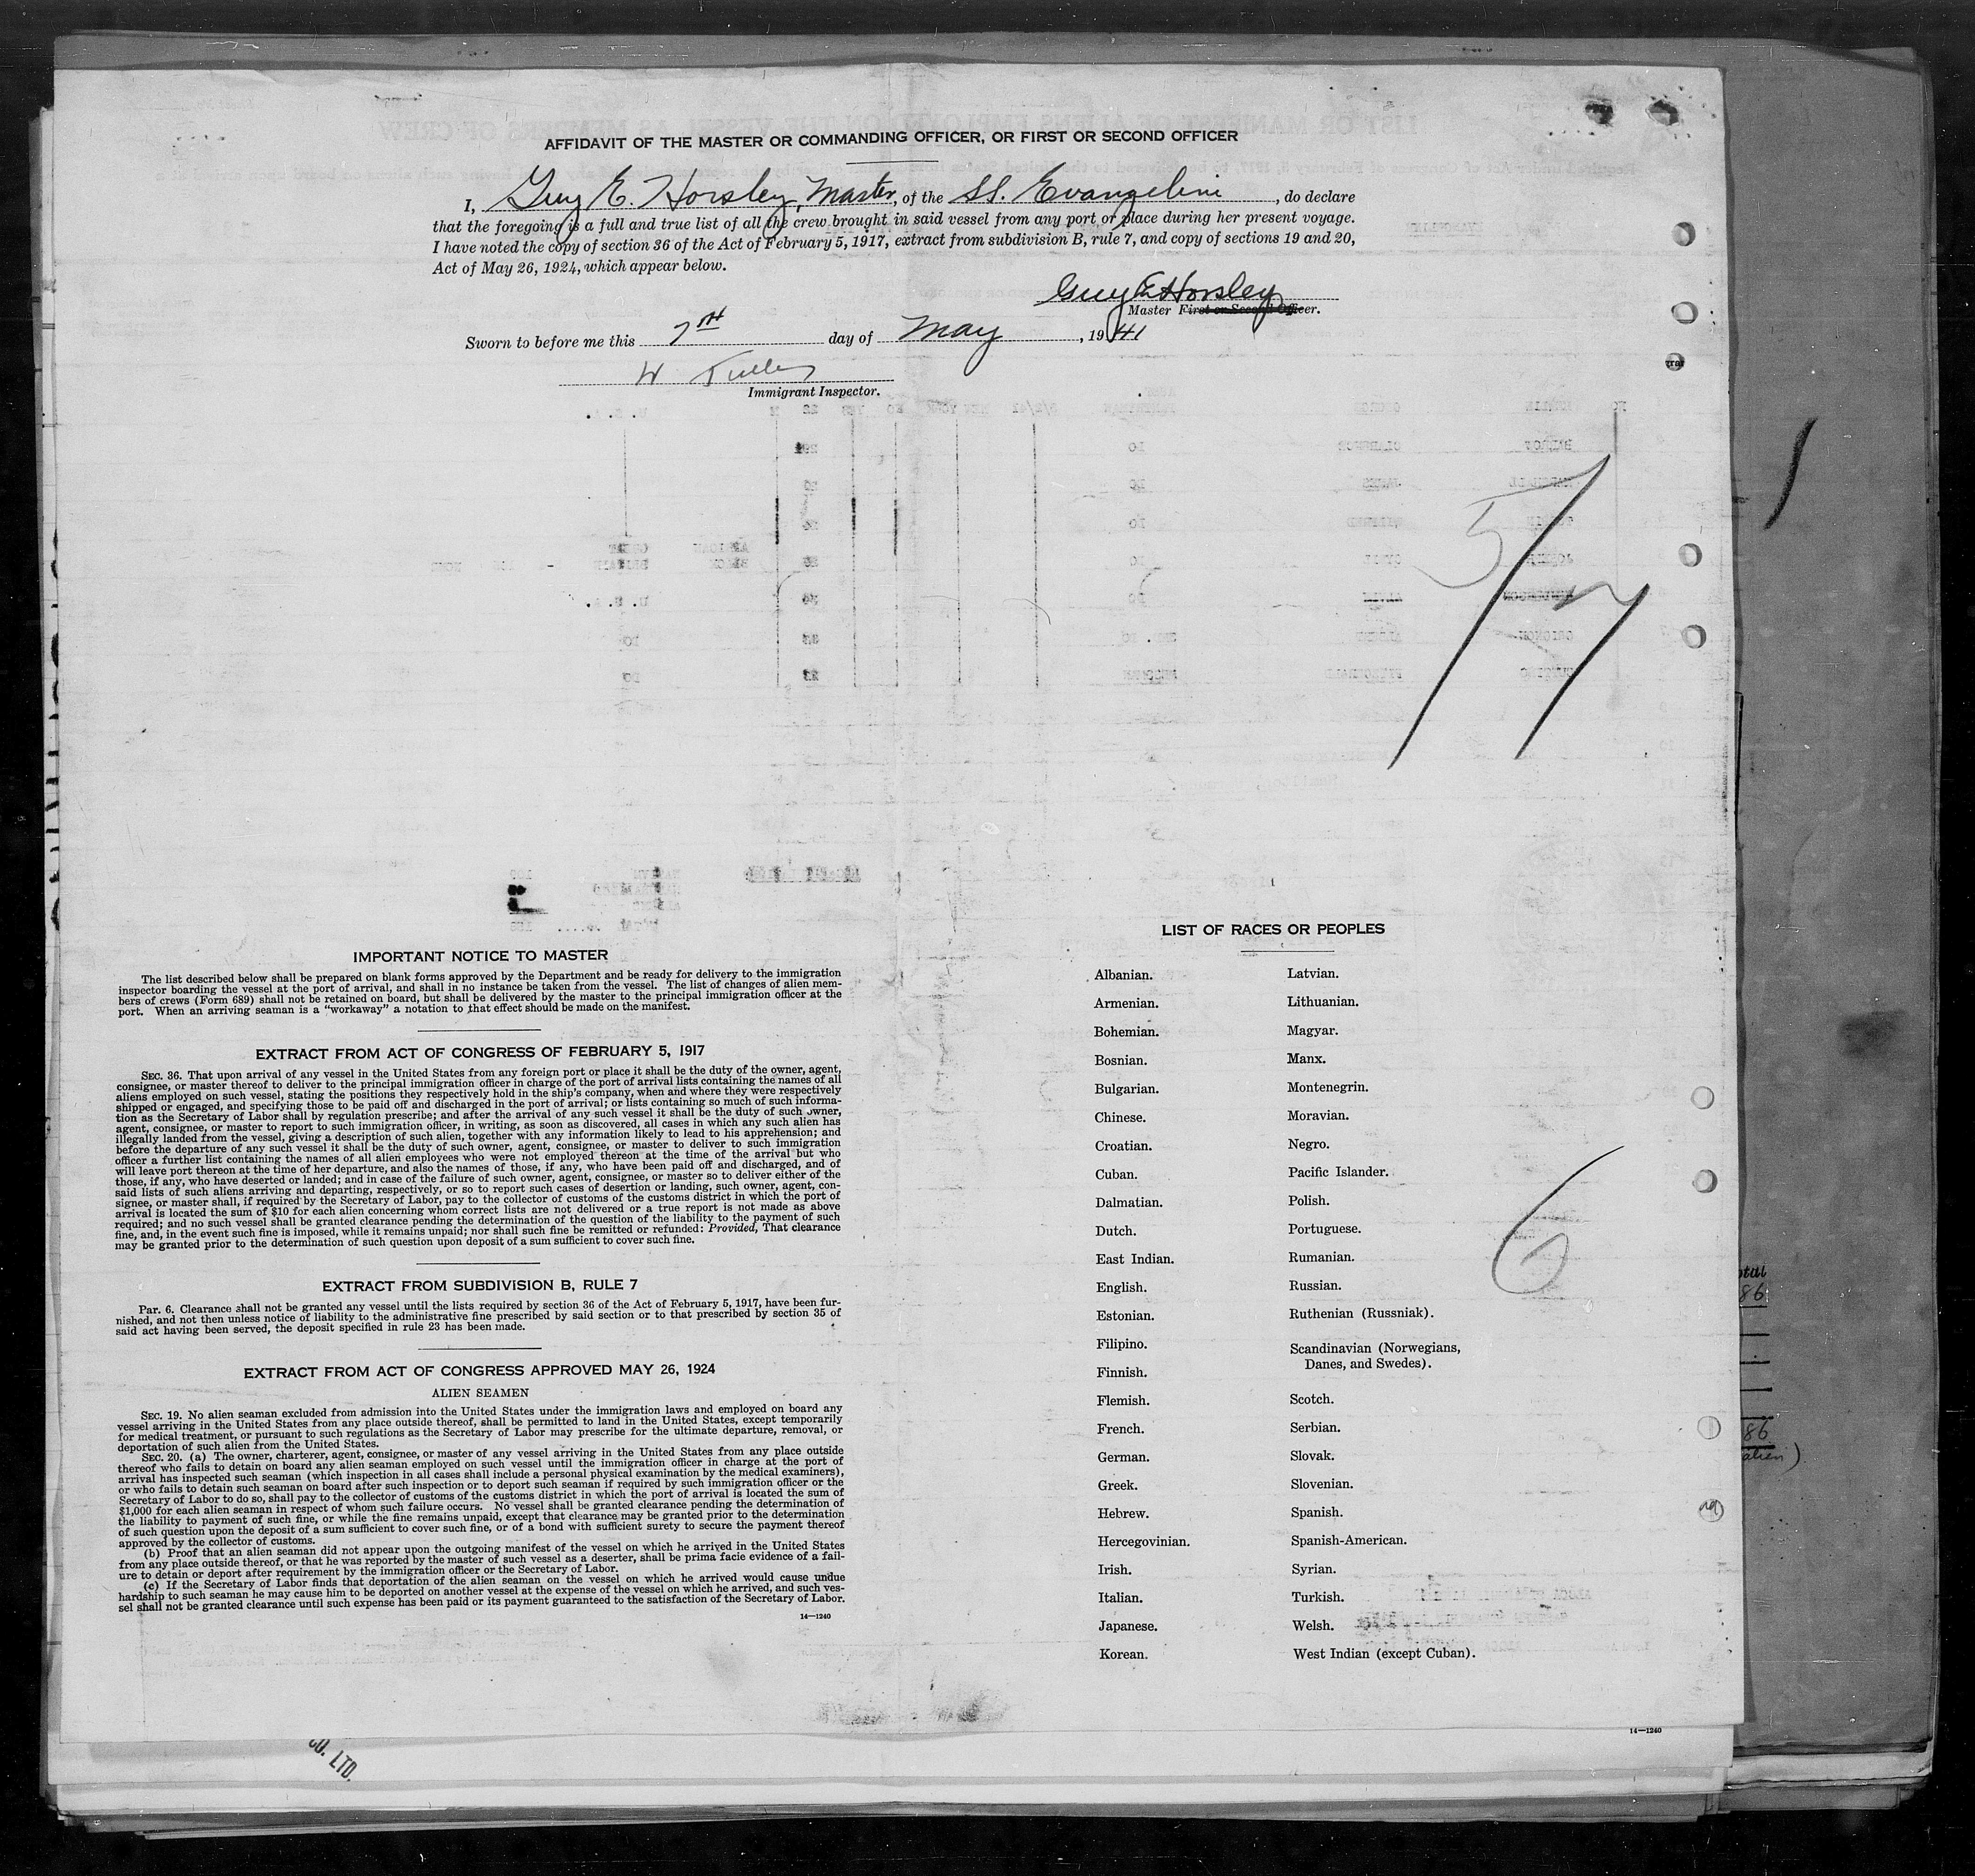 AFFIDAVIT OF THE MASTER OR COMMANDING OFFICER, OR FIRST OR SECOND OFFICER
I, Guy E. Horsley, Master, of the SS. Evangeline, do declare
that the foregoing is a full and true list of all the crew brought in said vessel from any port or place during her present voyage.
I have noted the copy of section 36 of the Act of February 5, 1917, extract from subdivision B, rule 7, and copy of sections 19 and 20,
Act of May 26, 1924, which appear below.
Guy E Horsley
Master First or Second Officer.
Sworn to before me this 7th day of May, 1941
W
Immigrant Inspector.
5/7
IMPORTANT NOTICE TO MASTER
The list described below shall be prepared on blank forms approved by the Department and be ready for delivery to the immigration
inspector boarding the vessel at the port of arrival, and shall in no instance be taken from the vessel. The list of changes of alien mem-
bers of crews (Form 689) shall not be retained on board, but shall be delivered by the master to the principal immigration officer at the
port. When an arriving seaman is a "workaway" a notation to that effect should be made on the manifest.
EXTRACT FROM ACT OF CONGRESS OF FEBRUARY 5, 1917
SEC. 36. That upon arrival of any vessel in the United States from any foreign port or place it shall be the duty of the owner, agent,
consignee, or master thereof to deliver to the principal immigration officer in charge of the port of arrival lists containing the names of all
aliens employed on such vessel, stating the positions they respectively hold in the ship's company, when and where they were respectively
shipped or engaged, and specifying those to be paid off and discharged in the port of arrival; or lists containing so much of such informa-
tion as the Secretary of Labor shall by regulation prescribe; and after the arrival of any such vessel it shall be the duty of such owner,
agent, consignee, or master to report to such immigration officer, in writing, as soon as discovered, all cases in which any such alien has
illegally landed from the vessel, giving a description of such alien, together with any information likely to lead to his apprehension; and
before the departure of any such vessel it shall be the duty of such owner, agent, consignee, or master to deliver to such immigration
officer a further list containing the names of all alien employees who were not employed thereon at the time of the arrival but who
will leave port thereon at the time of her departure, and also the names of those, if any, who have been paid off and discharged, and of
those, if any, who have deserted or landed; and in case of the failure of such owner, agent, consignee, or master so to deliver either of the
said lists of such aliens arriving and departing, respectively, or so to report such cases of desertion or landing, such owner, agent, con-
signee, or master shall, if required by the Secretary of Labor, pay to the collector of customs of the customs district in which the port of
arrival is located the sum of $10 for each alien concerning whom correct lists are not delivered or a true report is not made as above
required; and no such vessel shall be granted clearance pending the determination of the question of the liability to the payment of such
fine, and, in the event such fine is imposed, while it remains unpaid; nor shall such fine be remitted or refunded: Provided, That clearance
may be granted prior to the determination of such question upon deposit of a sum sufficient to cover such fine.
EXTRACT FROM SUBDIVISION B, RULE 7
Par. 6. Clearance shall not be granted any vessel until the lists required by section 36 of the Act of February 5, 1917, have been fur-
nished, and not then unless notice of liability to the administrative fine prescribed by said section or to that prescribed by section 35 of
said act having been served, the deposit specified in rule 23 has been made.
EXTRACT FROM ACT OF CONGRESS APPROVED MAY 26, 1924
ALIEN SEAMEN
SEC. 19. No alien seaman excluded from admission into the United States under the immigration laws and employed on board any
vessel arriving in the United States from any place outside thereof, shall be permitted to land in the United States, except temporarily
for medical treatment, or pursuant to such regulations as the Secretary of Labor may prescribe for the ultimate departure, removal, or
deportation of such alien from the United States.
SEC. 20. (a) The owner, charterer, agent, consignee, or master of any vessel arriving in the United States from any place outside
thereof who fails to detain on board any alien seaman employed on such vessel until the immigration officer in charge at the port of
arrival has inspected such seaman (which inspection in all cases shall include a personal physical examination by the medical examiners),
or who fails to detain such seaman on board after such inspection or to deport such seaman if required by such immigration officer or the
Secretary of Labor to do so, shall pay to the collector of customs of the customs district in which the port of arrival is located the sum of
$1,000 for each alien seaman in respect of whom such failure occurs. No vessel shall be granted clearance pending the determination of
the liability to payment of such fine, or while the fine remains unpaid, except that clearance may be granted prior to the determination
of such question upon the deposit of a sum sufficient to cover such fine, or of a bond with sufficient surety to secure the payment thereof
approved by the collector of customs.
(b) Proof that an alien seaman did not appear upon the outgoing manifest of the vessel on which he arrived in the United States
from any place outside thereof, or that he was reported by the master of such vessel as a deserter, shall be prima facie evidence of a fail-
ure to detain or deport after requirement by the immigration officer or the Secretary of Labor.
(c) If the Secretary of Labor finds that deportation of the alien seaman on the vessel on which he arrived would cause undue
hardship to such seaman he may cause him to be deported on another vessel at the expense of the vessel on which he arrived, and such ves-
sel shall not be granted clearance until such expense has been paid or its payment guaranteed to the satisfaction of the Secretary of Labor.
14—1240
LIST OF RACES OR PEOPLES
Albanian.
Armenian.
Bohemian.
Bosnian.
Bulgarian.
Chinese.
Croatian.
Cuban.
Dalmatian.
Dutch.
East Indian.
English.
Estonian.
Filipino.
Finnish.
Flemish.
French.
German.
Greek.
Hebrew.
Hercegovinian.
Irish.
Italian.
Japanese.
Korean.
Latvian.
Lithuanian.
Magyar.
Manx.
Montenegrin.
Moravian.
Negro.
Pacific Islander.
Polish.
Portuguese.
Rumanian.
Russian.
Ruthenian (Russniak).
Scandinavian (Norwegians,
Danes, and Swedes).
Scotch.
Serbian.
Slovak.
Slovenian.
Spanish.
Spanish-American.
Syrian.
Turkish.
Welsh.
West Indian (except Cuban).
6
14—1240
86
86
alien)
CO. LTD.